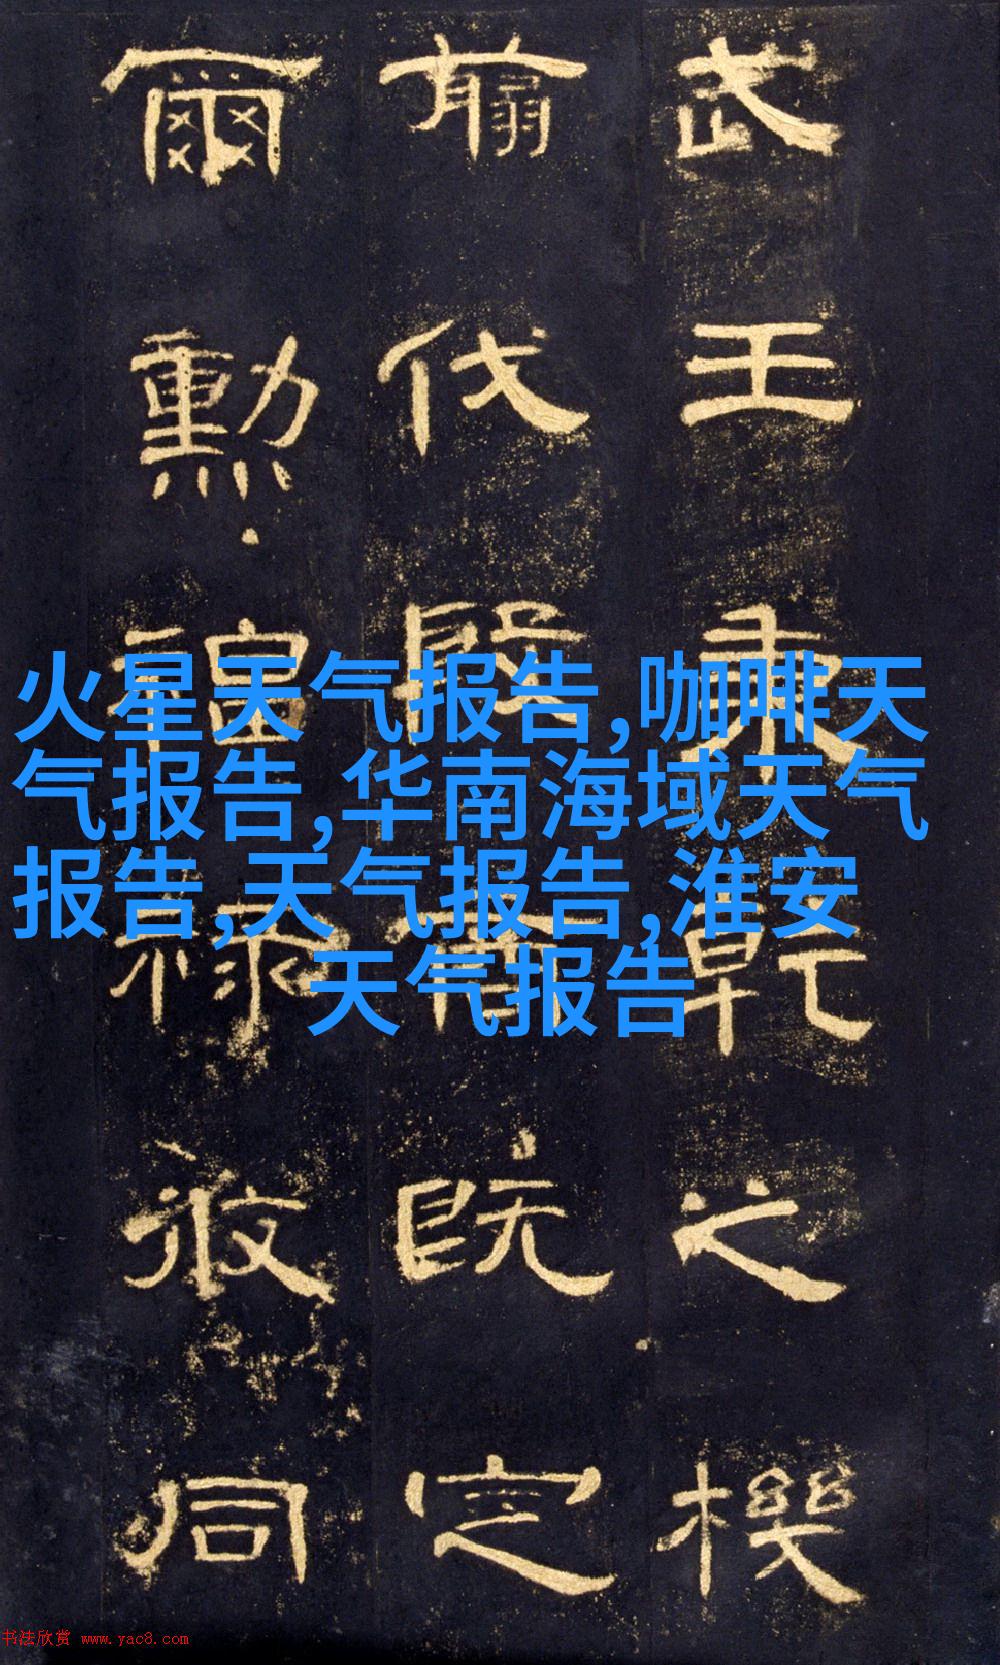 武王秉乾之機
翦伐殷商既定
爾勲福祿攸同
火星天气报告,咖啡天
气报告,华南海域天气
报告,天气报告,淮安
天气报告
书法欣赏 www.yac8.com